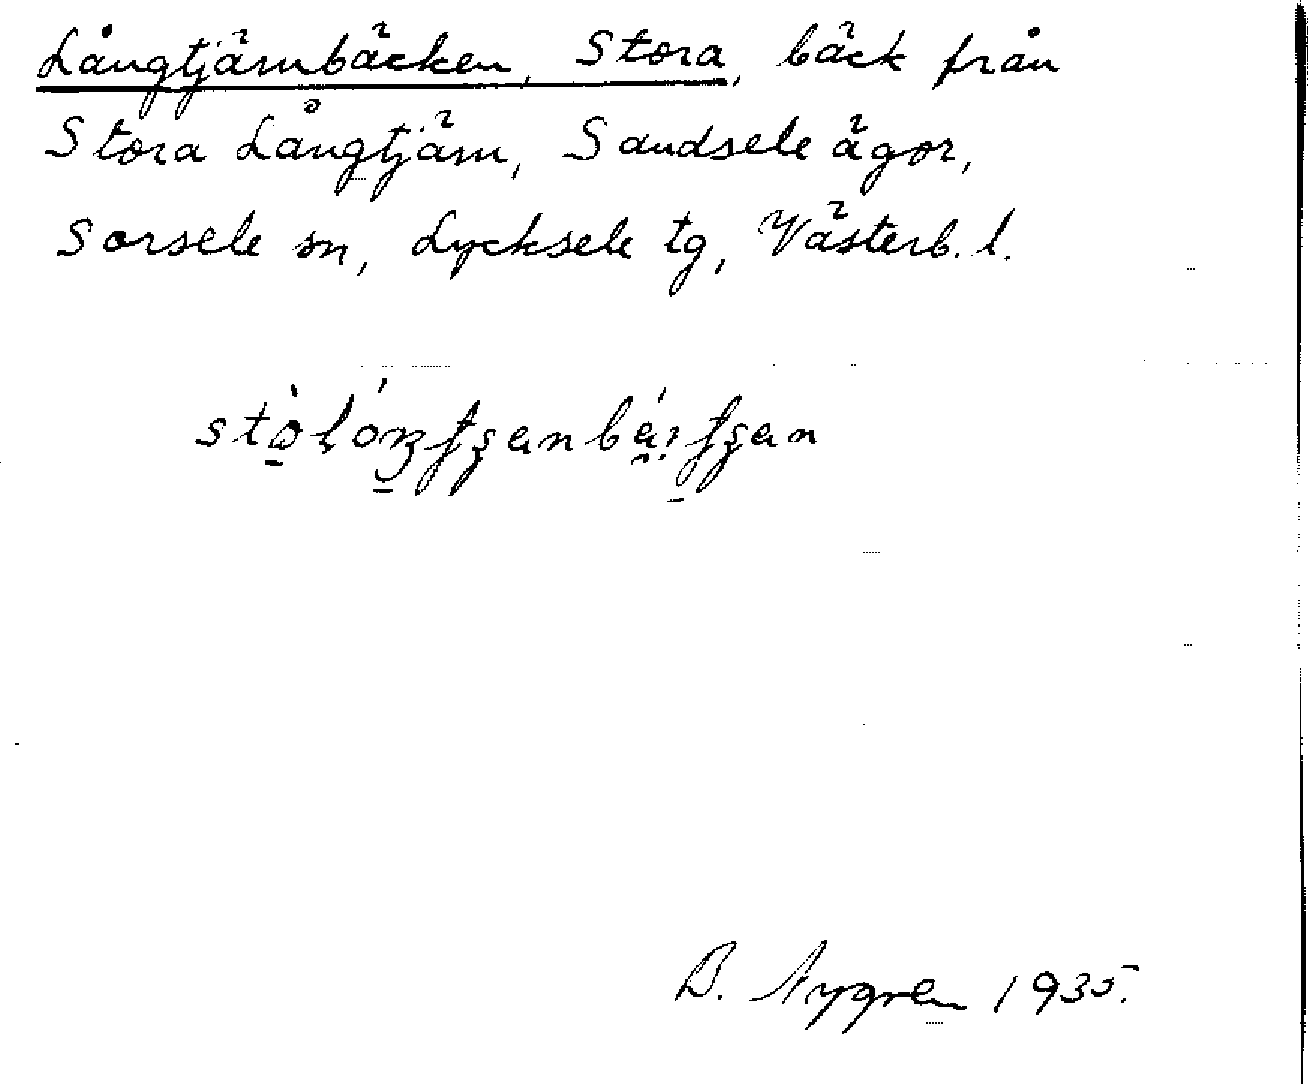 Långtjärnbäcken, Stora, bäck från
Stora Långtjärn, Sandsele ägor,
Sorsele sn, Lycksele tg, Västerb. l.
B. Nygren 1935.